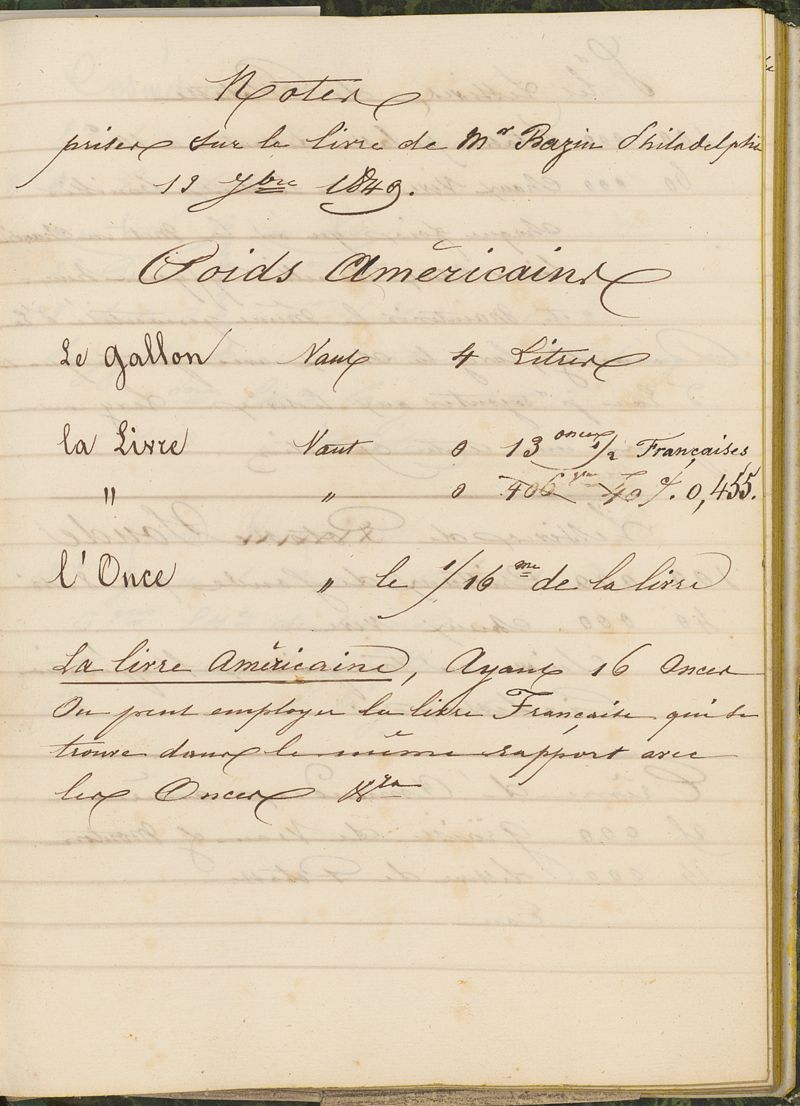 Notes
prises sur le livre de Mr Bazin Philadelphie
19 7bre 1849.
Poids Américains
Le gallon Vaut 4 Litres
la Livre Vaut 0 13 onces 1/2 Françaises
" " 0 406 gra 40 c/. 0,455.
l'Once " le 1/16 me de la livre
La livre Américaine, Ayant 16 Onces
On peut employer la livre Française qui se
trouve dans le même rapport avec
les Onces